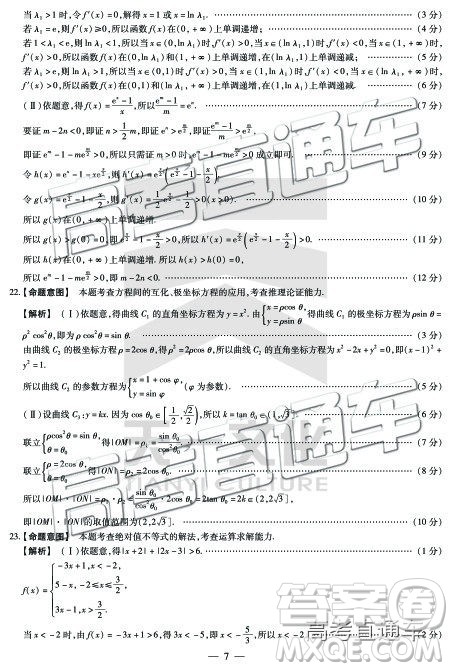 当λ₁>1时,令f′(x)=0,解得x=1或x=lnλ₁. (3分)
若λ₁=e,则f′(x)≥0,所以函数f(x)在(0,+∞)上单调递增; (4分)
若1<λ₁<e,则lnλ₁<1,所以当x∈(0,lnλ₁)时,f′(x)>0,当x∈(lnλ₁,1)时,f′(x)<0,当x∈(1,+∞)时,
f′(x)>0,所以函数f(x)在(0,lnλ₁)和(1,+∞)上单调递增,在(lnλ₁,1)上单调递减; (5分)
若λ₁>e,则lnλ₁>1,所以当x∈(0,1)时,f′(x)>0,当x∈(1,lnλ₁)时,f′(x)<0,当x∈(lnλ₁,+∞)时,
f′(x)>0,所以函数f(x)在(0,1)和(lnλ₁,+∞)上单调递增,在(1,lnλ₁)上单调递减. (6分)
(Ⅱ)依题意,得f(x)=(eˣ-1)/x,所以(eᵐ-1)/m=eⁿ. (7分)
要证m-2n<0,即证n>½m,即证eⁿ>e^(m/2),即证(eᵐ-1)/m>e^(m/2),
即证eᵐ-1-me^(m/2)>0,所以只需证m>0时,eᵐ-1-me^(m/2)>0成立即可. (9分)
令h(x)=eˣ-1-xe^(x/2),则h′(x)=e^(x/2)(e^(x/2)-1-x/2).
令g(x)=e^(x/2)-1-x/2,则g′(x)=½e^(x/2)-½>0(x>0).
所以g(x)在(0,+∞)上单调递增.
所以g(x)>g(0)=0,即e^(x/2)-1-x/2>0,所以h′(x)=e^(x/2)(e^(x/2)-1-x/2)>0. (11分)
所以h(x)在(0,+∞)上单调递增.
所以h(x)>h(0)=0.
所以eᵐ-1-me^(m/2)>0,即m-2n<0. (12分)
22.【命题意图】 本题考查方程间的互化、极坐标方程的应用,考查推理论证能力.
【解析】 (Ⅰ)依题意,得曲线C₁的直角坐标方程为y=x². 由{x=ρcosθ, y=ρsinθ, 得得曲线C₁的极坐标方程为ρsinθ=
ρ²cos²θ,即为ρcos²θ=sinθ. (3分)
由曲线C₂的极坐标方程ρ=2cosθ,得ρ²=2ρcosθ,所以曲线C₂的直角坐标方程为x²-2x+y²=0,即(x-1)²+
y²=1.
所以曲线C₂的参数方程为{x=1+cosφ, y=sinφ,(φ为参数). (5分)
(Ⅱ)设曲线C₃:y=kx. 因为cosθ₀∈[½,√2/2],所以k=tanθ₀∈[1,√3].
联立{ρcos²θ=sinθ, θ=θ₀, 得|OM|=ρ₁=sinθ₀/cos²θ₀. (7分)
联立{ρ=2cosθ, θ=θ₀, 得|ON|=ρ₂=2cosθ₀. (8分)
所以|OM|·|ON|=ρ₁·ρ₂=sinθ₀/cos²θ₀·2cosθ₀=2tanθ₀=2k∈[2,2√3].
即|OM|·|ON|的取值范围为[2,2√3]. (10分)
23.【命题意图】 本题考查绝对值不等式的解法,考查运算求解能力.
【解析】 (Ⅰ)依题意,得|x+2|+|2x-3|>6. (1分)
f(x)={-3x+1,x<-2,
5-x,-2≤x≤3/2,
3x-1,x>3/2.
当x<-2时,由f(x)=-3x+1>6,得3x<-5,即x<-5/3,所以x<-2 (2分)
— 7 —
高考直通车
天一文化
TIANYI CULTURE